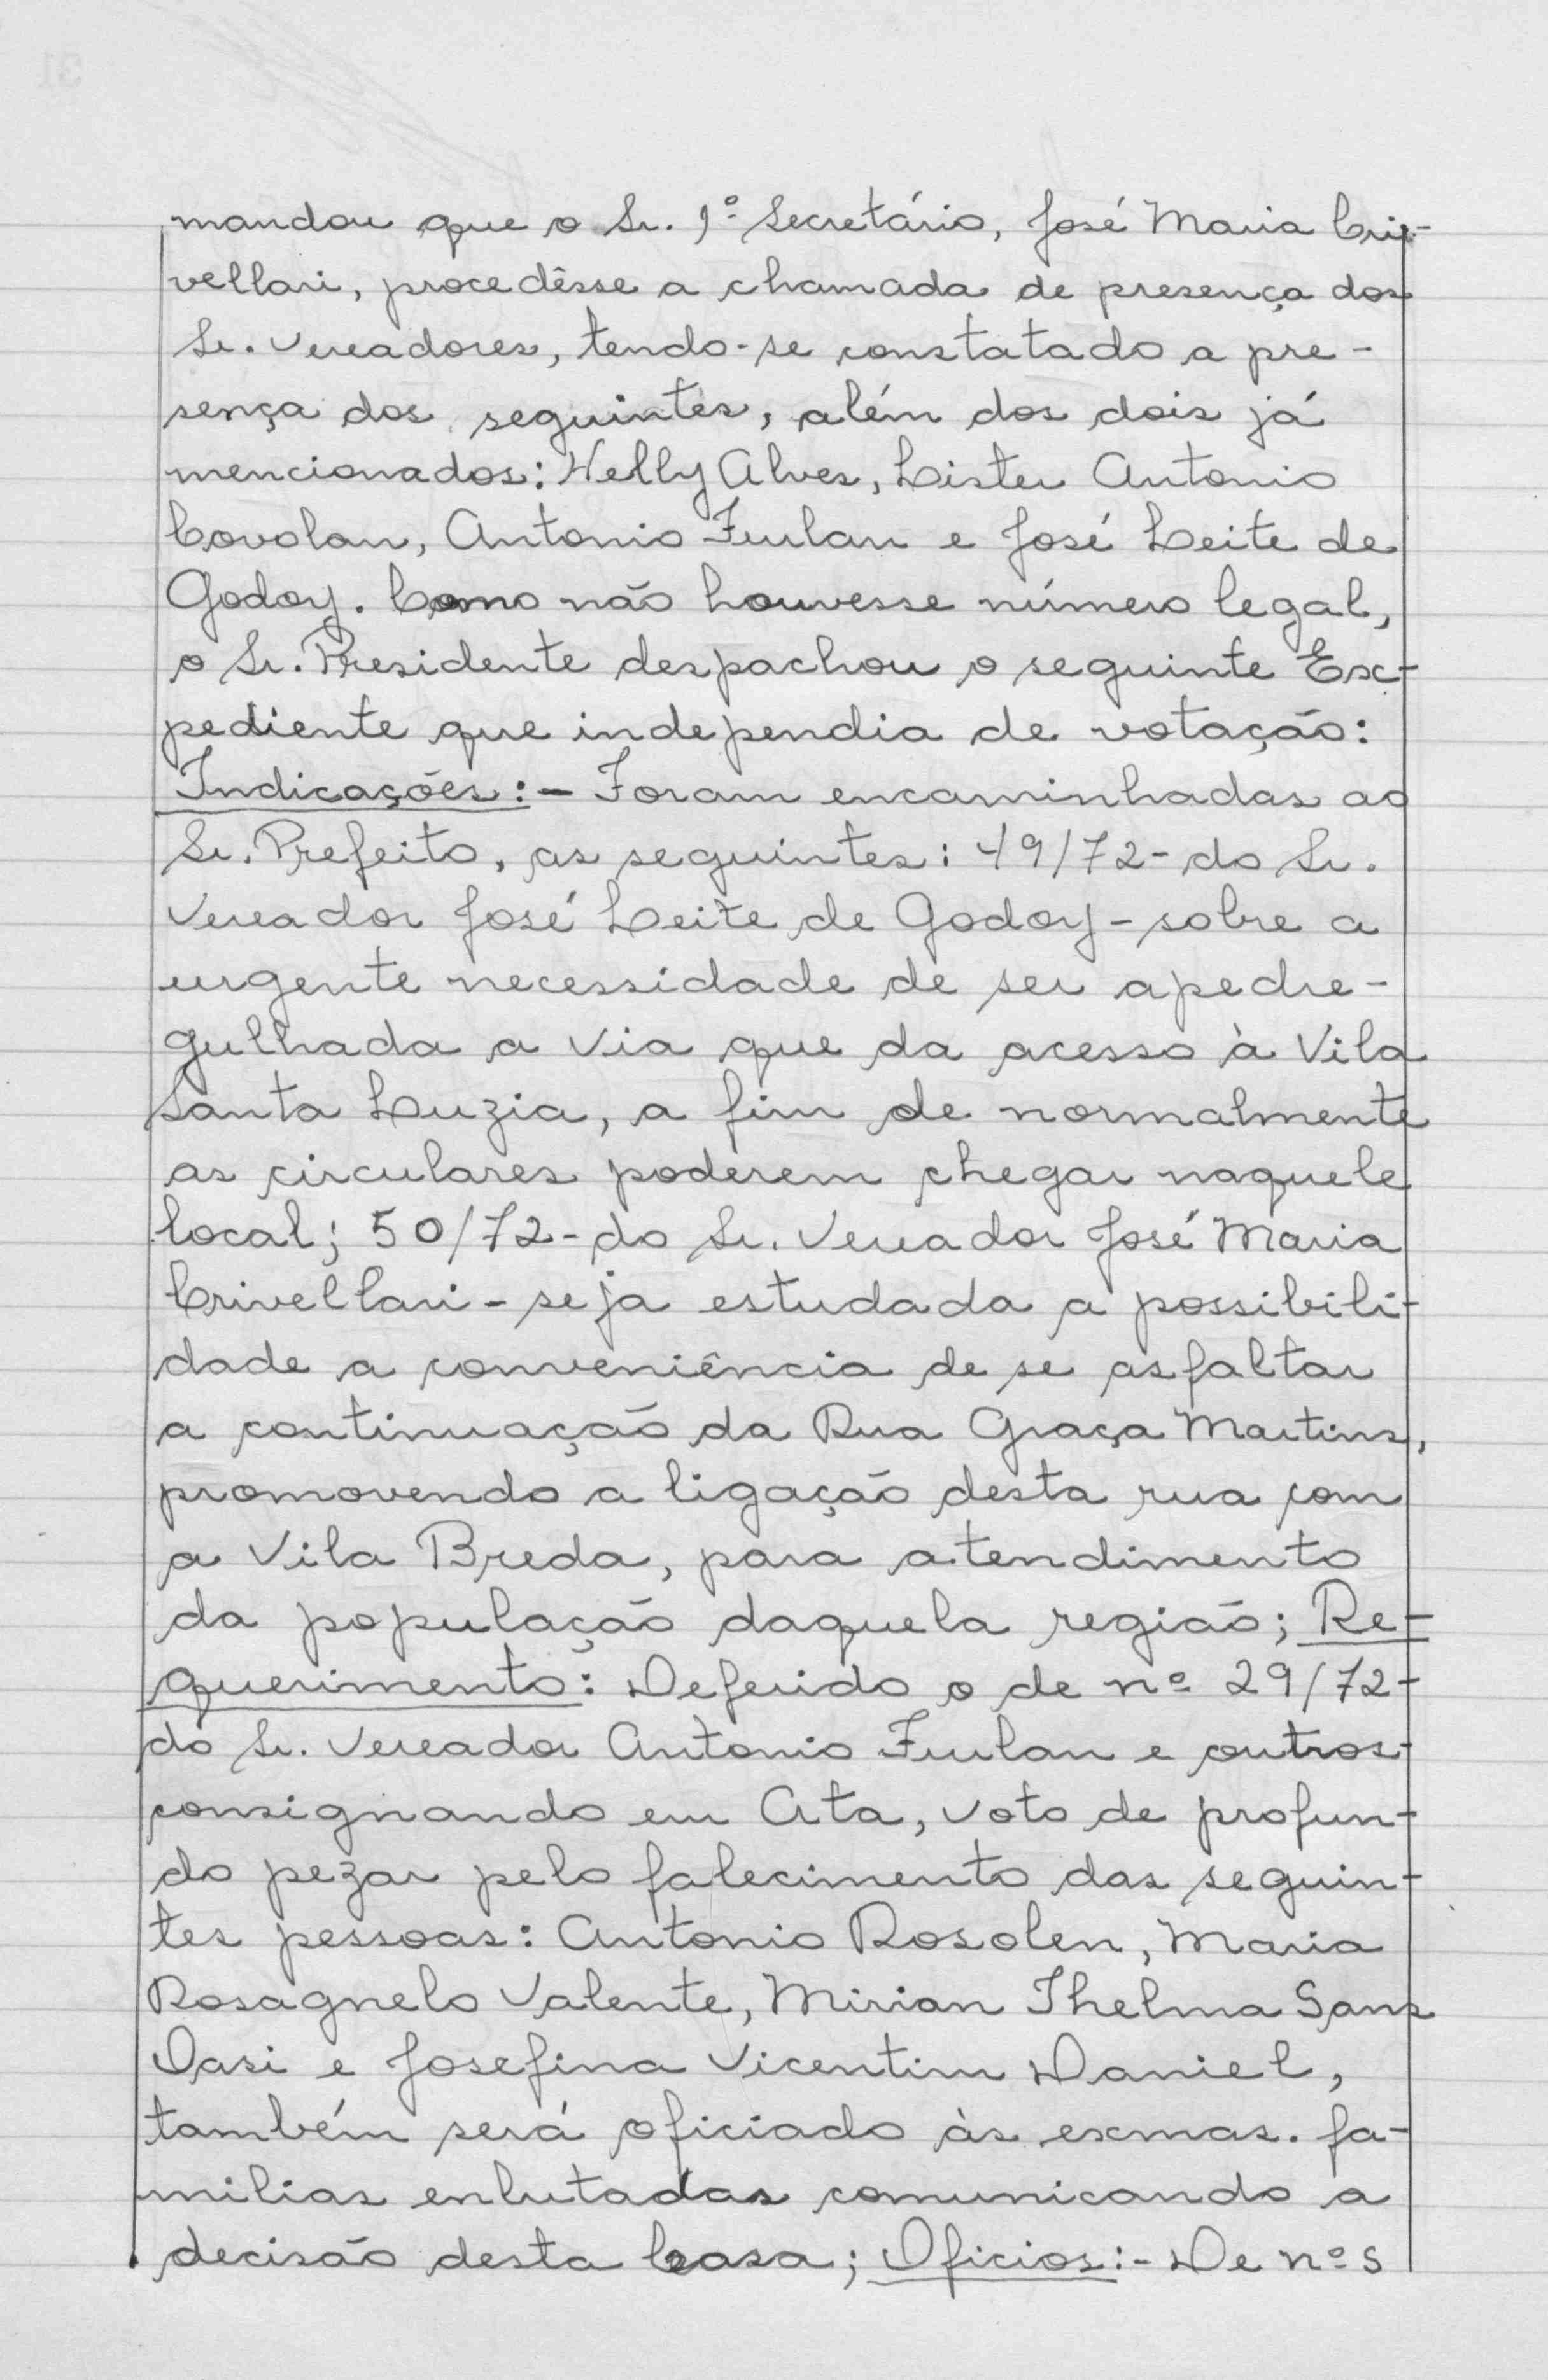 mandou que o Sr. 1º Secretário, José Maria Cri-
vellari, procedêsse a chamada de presença dos
Sr. Vereadores, tendo-se constatado a pre-
sença dos seguintes, além dos dois já
mencionados: Nelly Alves, Lister Antonio
Covolan, Antonio Furlan e José Leite de
Godoy. Como não houvesse número legal,
o Sr. Presidente despachou o seguinte Ex-
pediente que independia de votação:
Indicações:- Foram encaminhadas ao
Sr. Prefeito, as seguintes: 49/72- do Sr.
Vereador José Leite de Godoy - sobre a
urgente necessidade de ser apedre-
gulhada a via que da acesso à Vila
Santa Luzia, a fim de normalmente
as circulares poderem chegar naquele
local; 50/72- do Sr. Vereador José Maria
Crivellari - seja estudada a possibili-
dade a conveniência de se asfaltar
a continuação da Rua Graça Martins,
promovendo a ligação desta rua com
a Vila Breda, para atendimento
da população daquela região; Re-
querimento: Deferido o de nº 29/72-
do Sr. Vereador Antonio Furlan e outros-
consignando em Ata, voto de profun-
do pezar pelo falecimento das seguin-
tes pessoas: Antonio Rosolen, Maria
Rosagnelo Valente, Mirian Thelma Sans
Dasi e Josefina Vicentim Daniel,
também será oficiado às exmas. fa-
milias enlutadas comunicando a
decisão desta Casa; Oficios:- De nºs